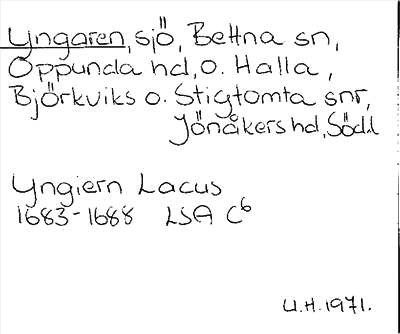 Yngaren, sjö, Bettna sn,
Oppunda hd, o. Halla,
Björkviks o. Stigtomta snr,
Jönåkers hd, Södl
Yngiern Lacus
1683-1688 LSA C6
U.H. 1971.